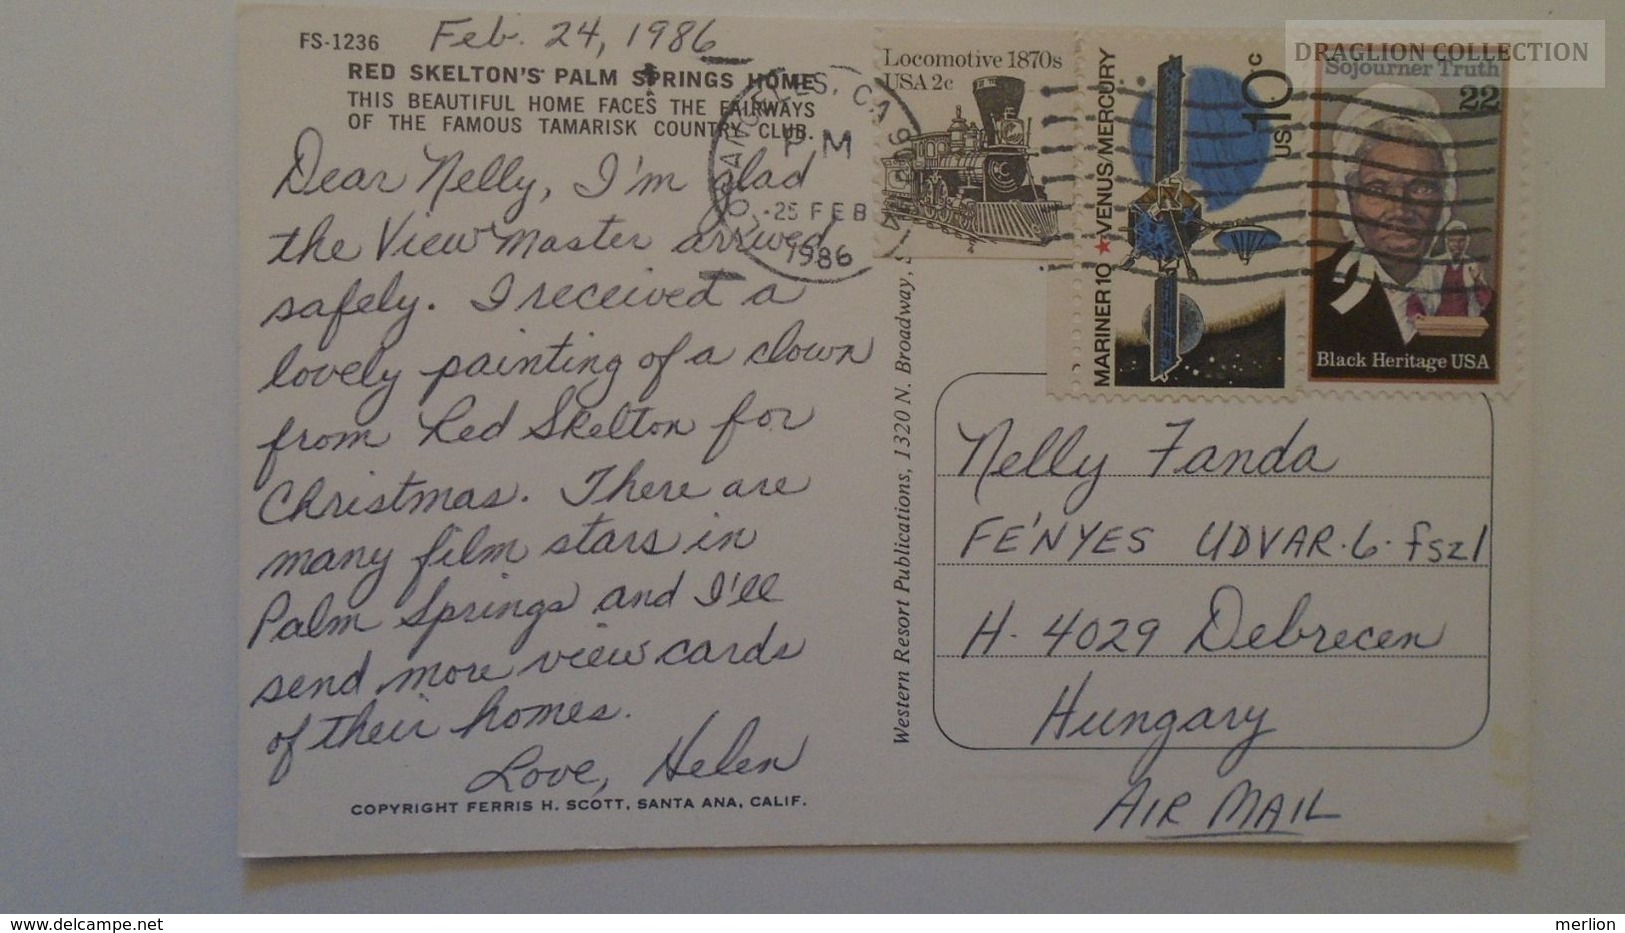 DRAGLION COLLECTION
FS-1236
Feb. 24, 1986
RED SKELTON'S PALM SPRINGS HOME
THIS BEAUTIFUL HOME FACES THE FAIRWAYS
OF THE FAMOUS TAMARISK COUNTRY CLUB.
Dear Nelly, I'm glad
the View Master arrived
safely. I received a
lovely painting of a clown
from Red Skelton for
Christmas. There are
many film stars in
Palm Springs and I'll
send more view cards
of their homes.
Love, Helen
COPYRIGHT FERRIS H. SCOTT, SANTA ANA, CALIF.
LOS ANGELES, CA
PM
25 FEB
1986
Locomotive 1870s
USA 2c
MARINER 10 ★ VENUS/MERCURY
US 10c
Sojourner Truth
22
Black Heritage USA
Western Resort Publications, 1320 N. Broadway,
Nelly Fanda
FE'NYES UDVAR.6.fsz1
H-4029 Debrecen
Hungary
AIR MAIL
www.delcampe.net
merlion